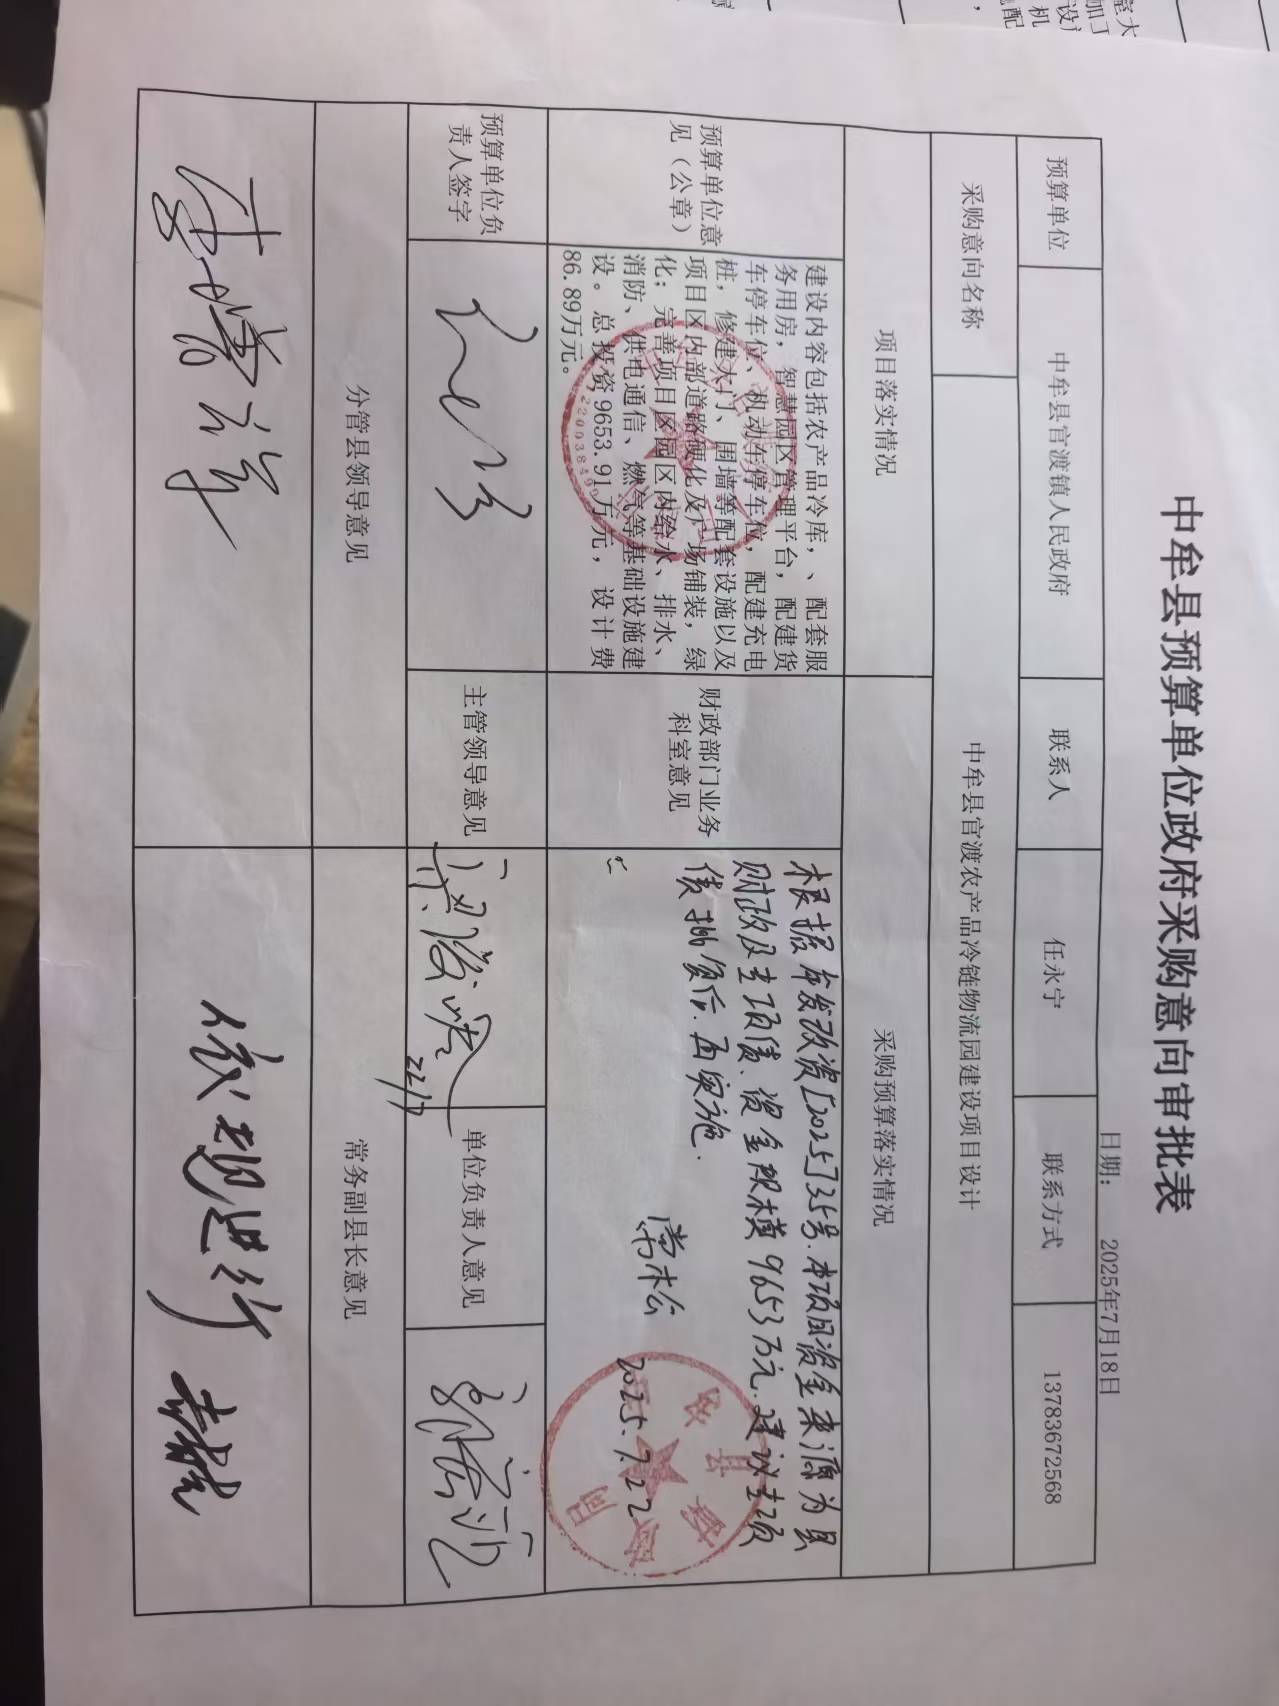 中牟县预算单位政府采购意向审批表
日期： 2025年7月18日
预算单位 中牟县官渡镇人民政府 联系人 任永宁 联系方式 13783672568
采购意向名称 中牟县官渡农产品冷链物流园建设项目设计
项目落实情况 采购预算落实情况
预算单位意
见（公章）
建设内容包括农产品冷库，、配套服
务用房，智慧园区管理平台，配建货
车停车位、机动车停车位，配建充电
桩，修建大门、围墙等配套设施以及
项目区内部道路硬化及广场铺装，绿
化；完善项目区园区内给水、排水、
消防、供电通信、燃气等基础设施建
设。总投资9653.91万元，设计费
86.89万元。
财政部门业务
科室意见
根据牟发改资[2025]35号.本项目资金来源为县
财政及专项债.资金规模9653万元.建议专项
债批复后.再实施.
常松
2025.7.22
县财政局
预算单位负
责人签字
主管领导意见
22/7
单位负责人意见
分管县领导意见 常务副县长意见